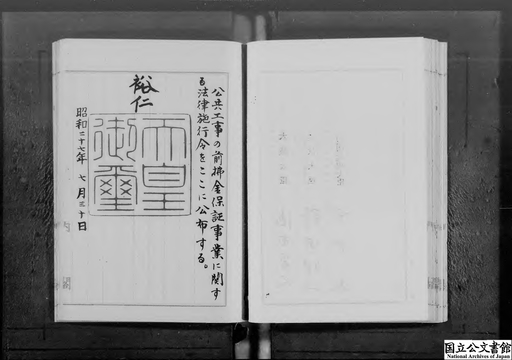 公共工事の前拂金保証事業に関す
る法律施行令をここに公布する。
裕仁
天皇
御璽
昭和二十七年 七月三十日
国立公文書館
National Archives of Japan